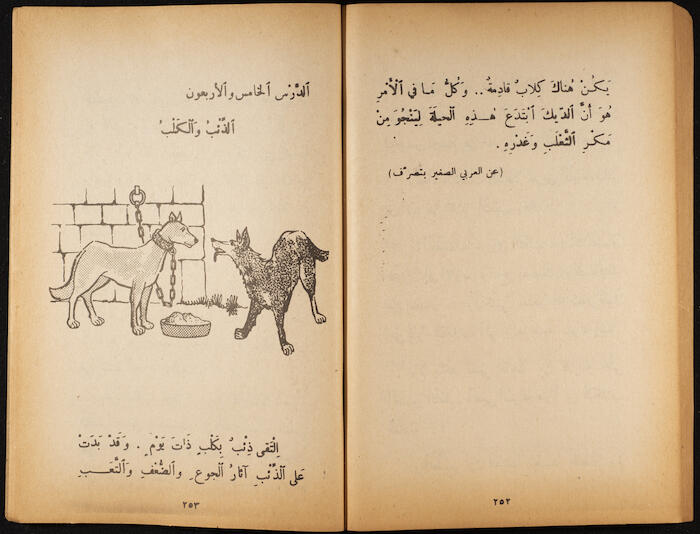 يَكُنْ هُنَاكَ كِلابٌ قادِمَةٌ .. وَكُلُّ مَا في الْأَمْرِ
هُوَ أَنَّ الدّيكَ ابْتَدَعَ هٰذِهِ الْحيلَةَ لِيَنْجُوَ مِنْ
مَكْرِ الثَّعْلَبِ وَغَدْرِهِ .
(عن العربي الصغير بتصرّف)
٢٥٢
الدَّرْسُ الخامس والأربعون
الذِّئْبُ وَالْكَلْبُ
اِلْتَقى ذِئْبٌ بِكَلْبٍ ذَاتَ يَوْمٍ . وَقَدْ بَدَتْ
عَلى الذِّئْبِ آثارُ الْجوعِ وَالضُّعْفِ وَالتَّعَبِ
٢٥٣